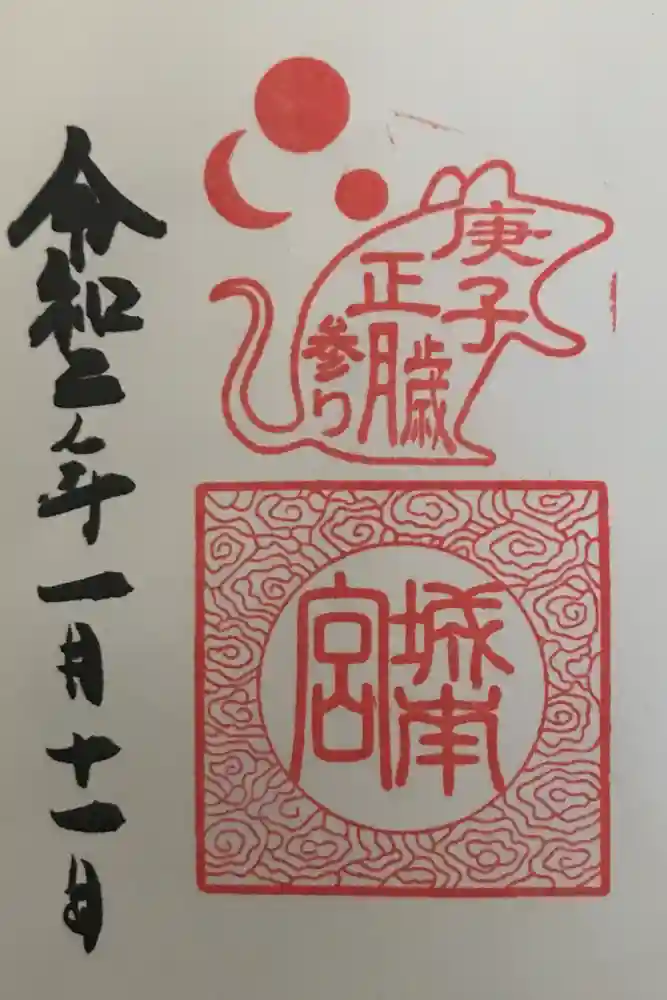 庚子歳
正月
参り
城南
宮
令和二年一月十一日